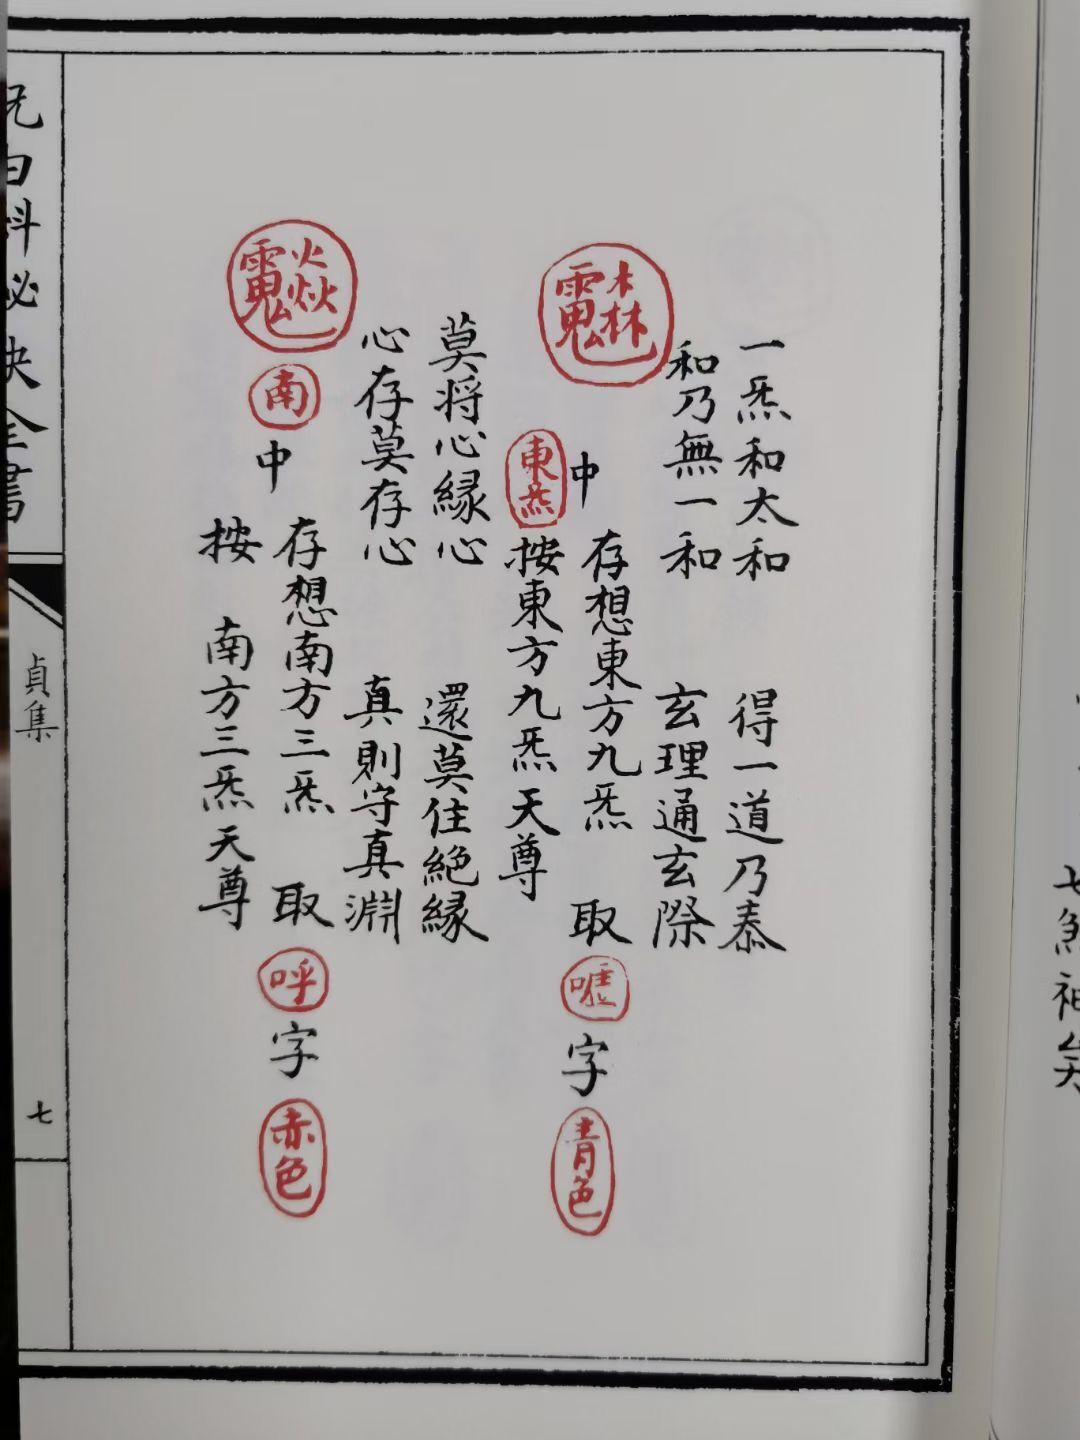 一炁和太和　得一道乃泰
和乃無一和　玄理通玄際
中　存想東方九炁　取嚦字　青色
東炁　按東方九炁天尊
莫将心緣心　還莫住絕緣
心存莫存心　真則守真淵
南　中　存想南方三炁　取呼字　赤色
按　南方三炁天尊
科祕訣全書
貞集
七